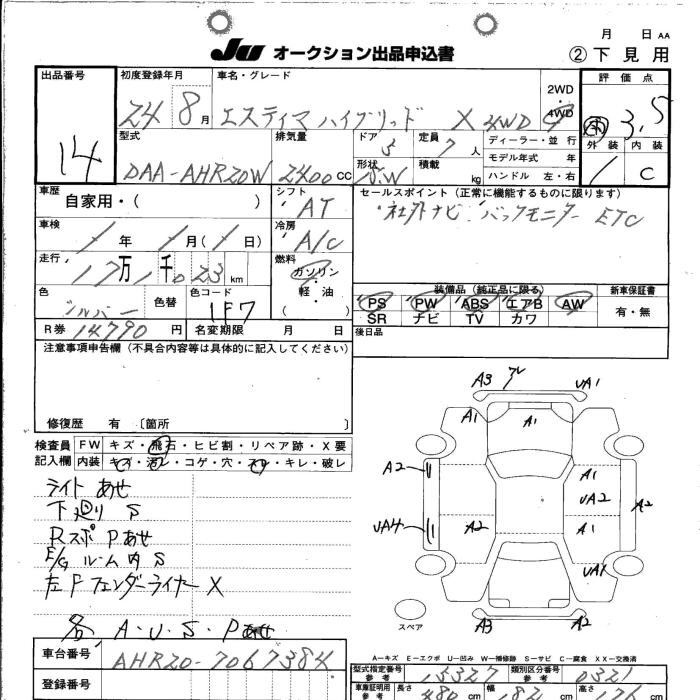 月 日 AA
JU オークション出品申込書
② 下 見 用
出品番号
14
初度登録年月
24 8月
車名・グレード
エスティマ ハイブリッド X 4WD
2WD
・
4WD
評 価 点
3.5
外 装 内 装
C
型式
DAA-AHR20W
排気量
2400 CC
ドア
5
形状
S.W
定員
7 人
積載
kg
ディーラー・並 行
モデル年式 年
ハンドル 左・右
車歴
自家用・( )
シフト
AT
セールスポイント (正常に機能するものに限ります)
・社外ナビ バックモニター ETC
車検
/ 年 / 月( / 日)
冷房
A/C
走行
17万 1千 023 km
燃料
ガソリン
・
軽・油
( )
色
シルバー
色替
色コード
1F7
装備品 (純正品に限る)
PS PW ABS エアB AW
SR ナビ TV カワ
新車保証書
有・無
R券 14790 円
名変期限 月 日
後日品
注意事項申告欄 (不具合内容等は具体的に記入してください)
修復歴 有 〔箇所 〕
検査員
記入欄
FW キズ・飛石・ヒビ割・リペア跡・X要
内装 キズ・汚レ・コゲ・穴・スレ・キレ・破レ
ライト あせ
下廻り S
Rスポ Pあせ
E/G ルーム内 S
左Fフェンダーライナー X
各 A・U・S・Pあせ
A3 UA1
A1 A1
A2 A1
UA2 A2
UA4 A2 A1
UA1
スペア
A3 A2
A-キズ E-エクボ U-凹み W-補修跡 S-サビ C-腐食 XX-交換済
車台番号
AHR20-7067384
登録番号
型式指定番号
参 考
15327
類別区分番号
参 考
0321
車庫証明用
参 考
長さ
480 cm
幅
182 cm
高さ
176 cm